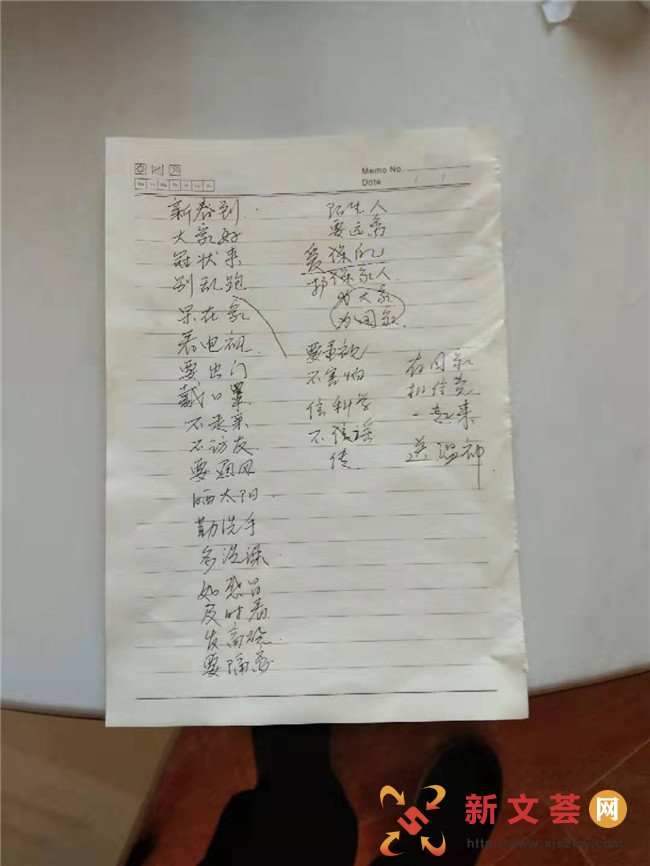 Memo No.
Date
新春到
大家好
冠状来
别乱跑
呆在家
看电视
要出门
戴口罩
不走亲
不访友
要通风
晒太阳
勤洗手
多洗澡
如感冒
及时看
发高烧
要隔离
陌生人
要远离
爱保的
家人
为大家
为国家
要重视
不害怕
信科学
不信谣
传
有国家
相信党
一起来
送瘟神
新文荟网
http://www.xjszhw.com